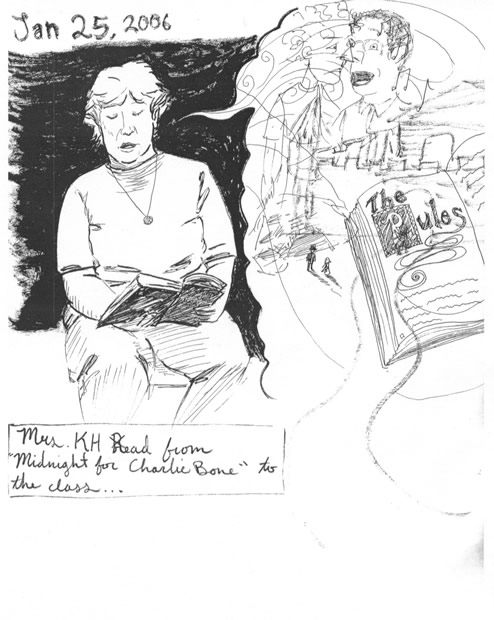 Jan 25, 2006
The
Rules
Mrs. KH Read from
"Midnight for Charlie Bone" to
the class...